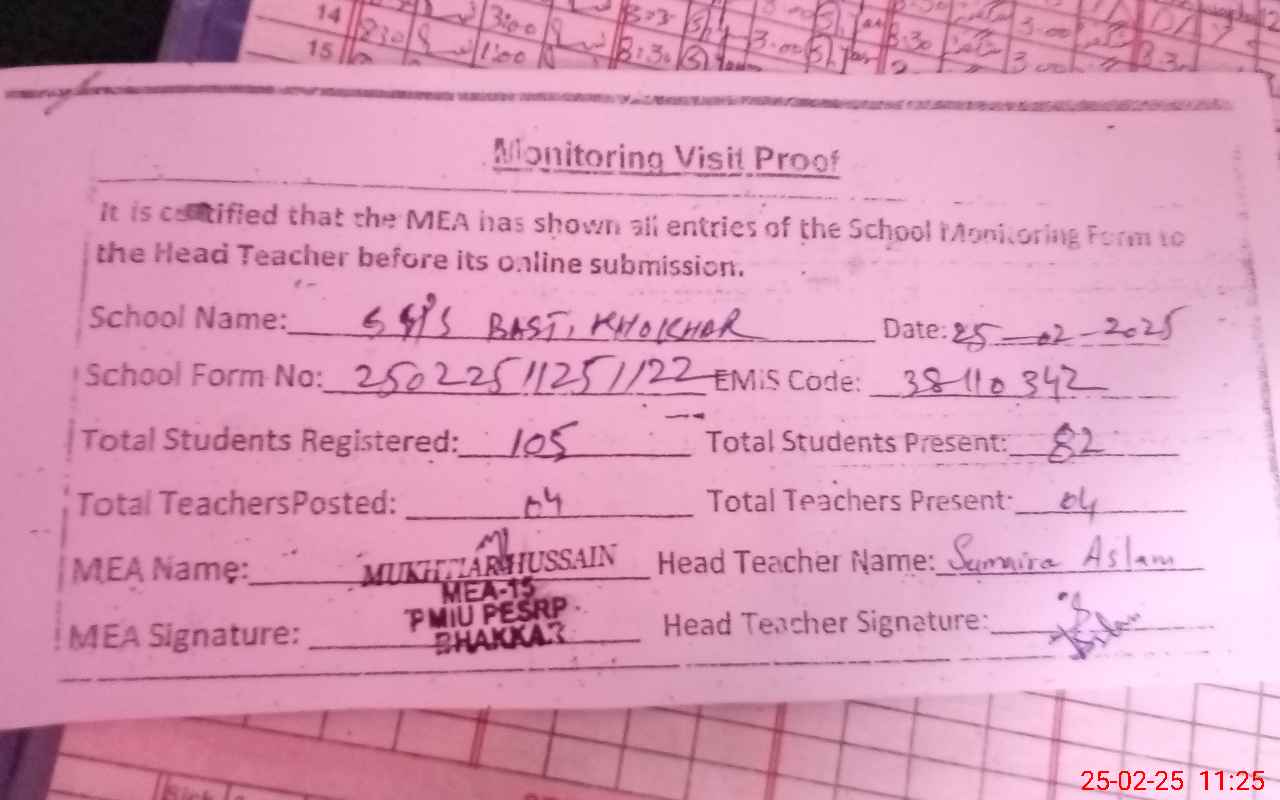 14
3:00
15
8:30
1:00
8:30
3.00
8:30
3.00
Monitoring Visit Proof
It is certified that the MEA has shown all entries of the School Monitoring Form to
the Head Teacher before its online submission.
School Name: GGPS BASTI KHOKHAR Date: 25-02-2025
School Form No: 25022511251122 EMIS Code: 38110342
Total Students Registered: 105 Total Students Present: 82
Total TeachersPosted: 04 Total Teachers Present: 04
MEA Name: MUKHTIAR HUSSAIN Head Teacher Name: Sumaira Aslam
MEA-15
PMIU PESRP
MEA Signature: BHAKKAR Head Teacher Signature:
25-02-25 11:25